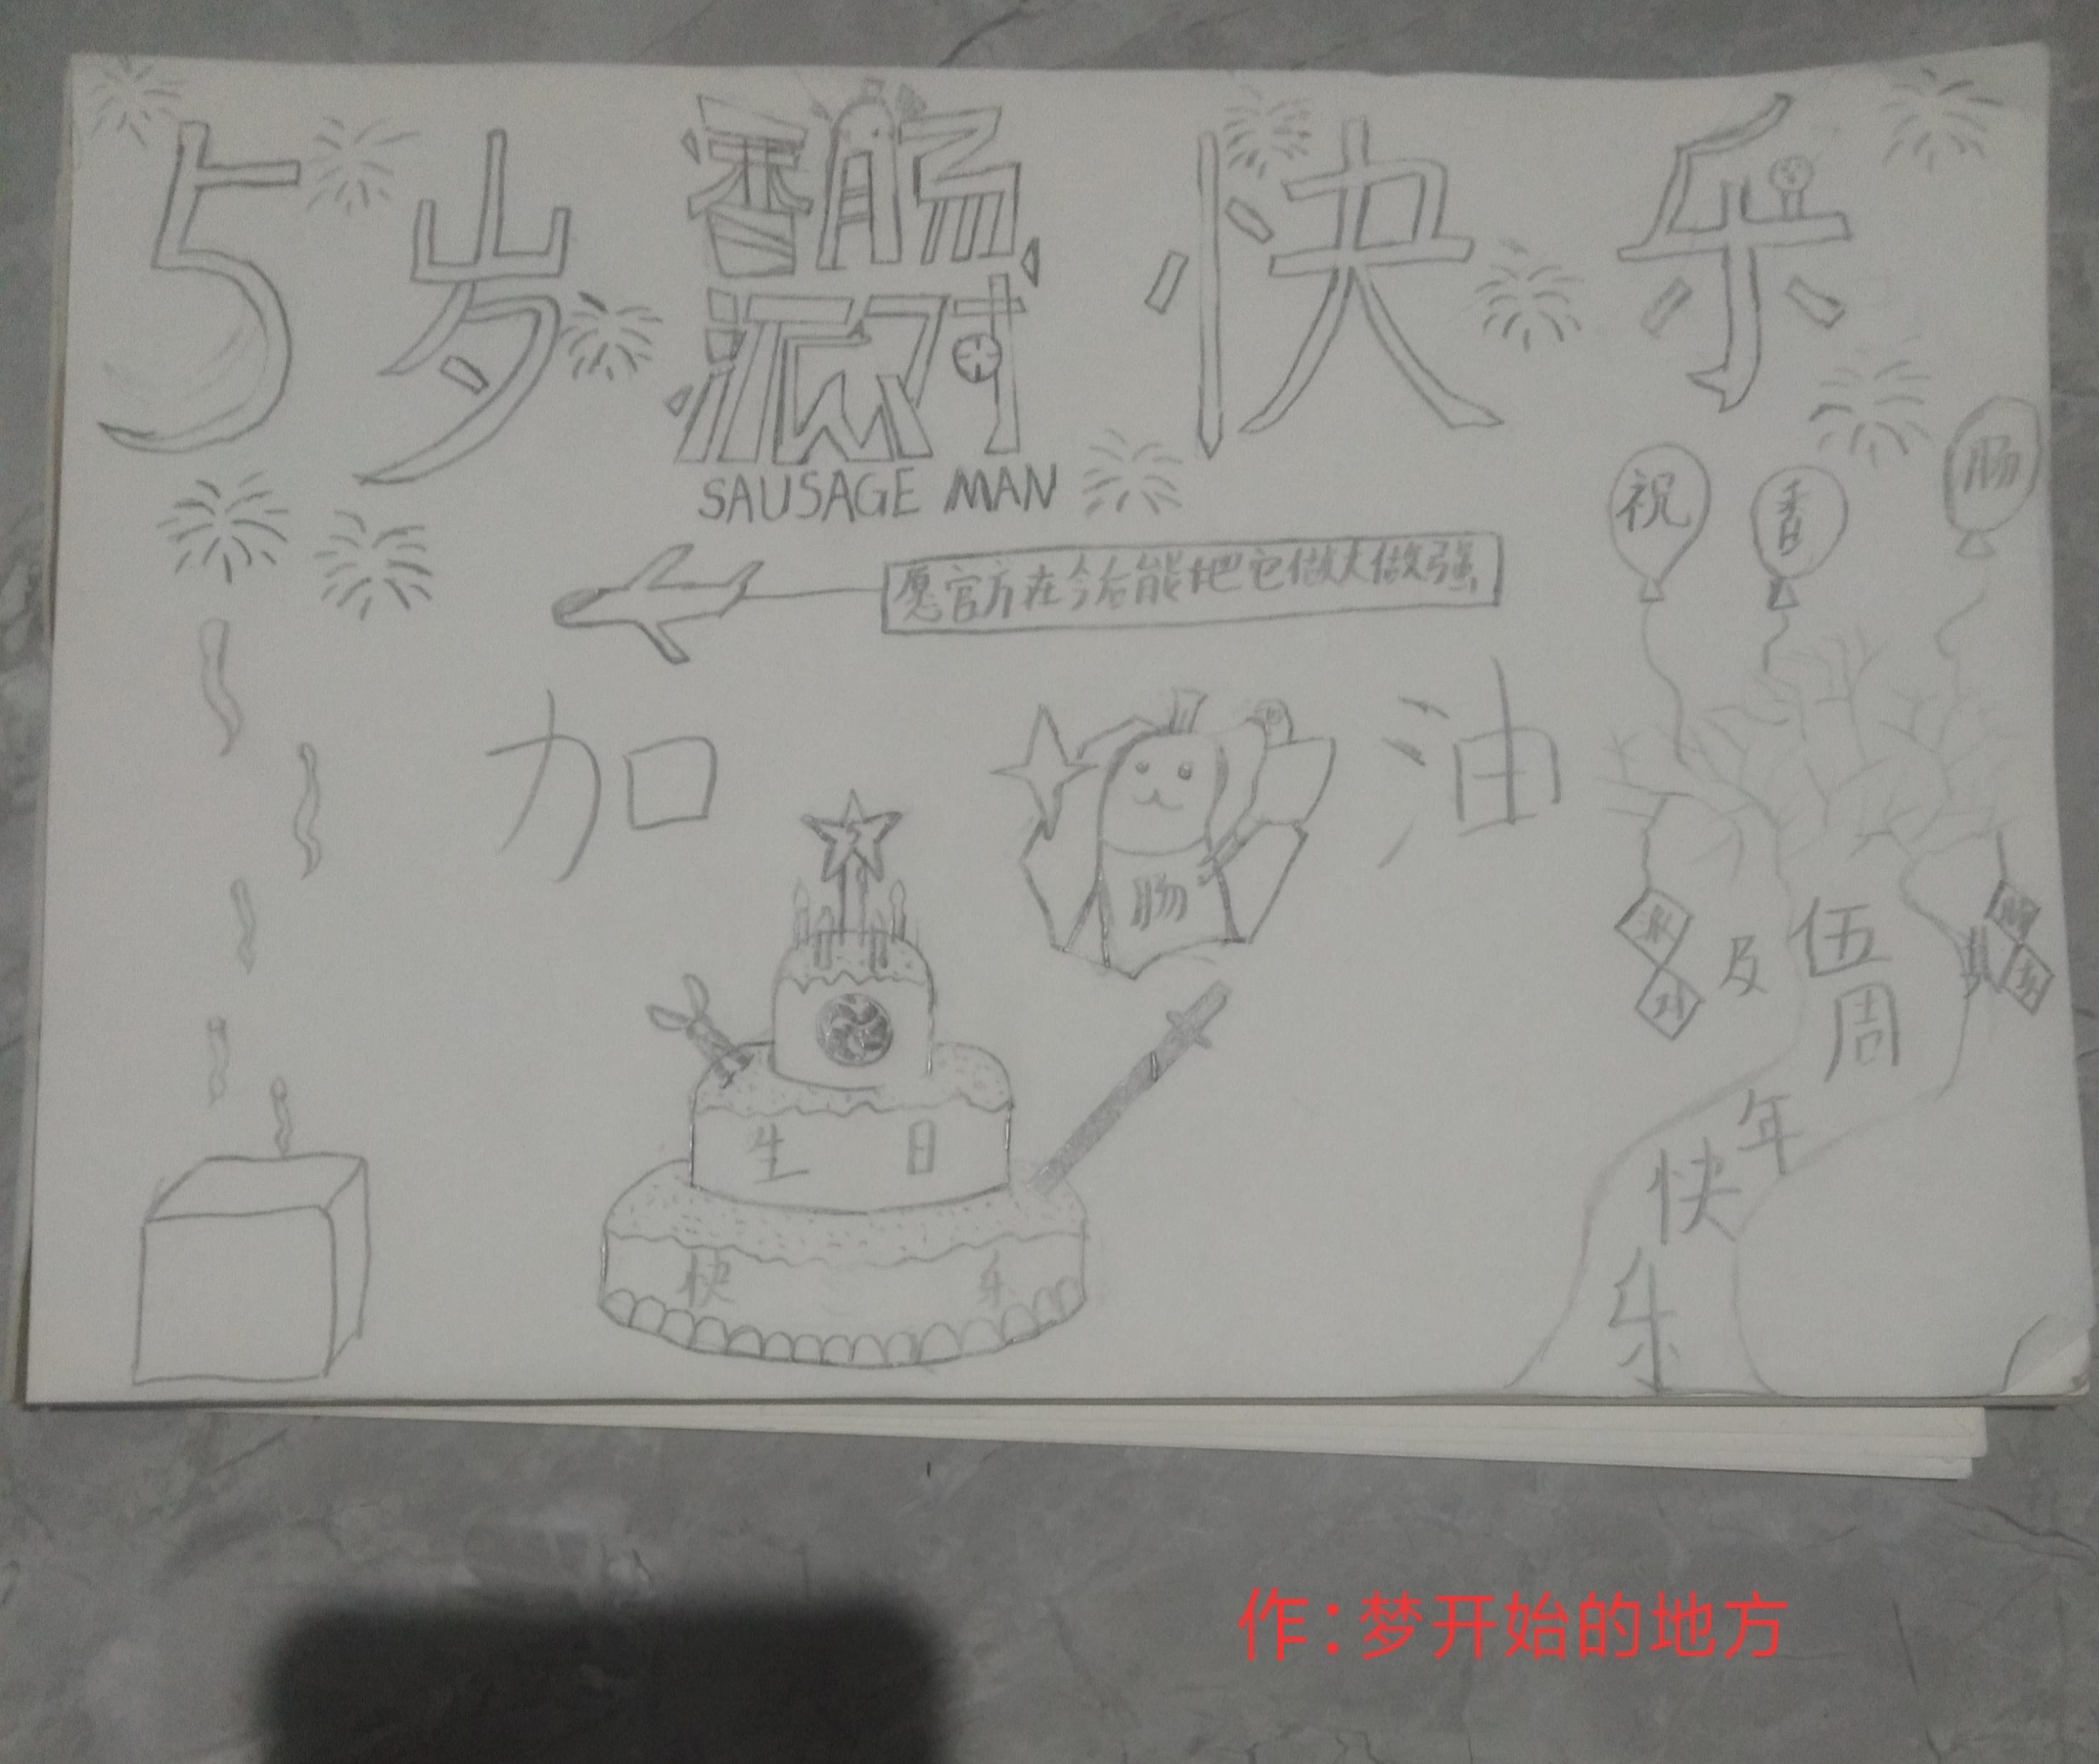 5岁香肠派对快乐
SAUSAGE MAN
愿官方在今后能把它做大做强
加油
5
肠
祝香肠
派对及其
伍周年快乐
生日
快乐
作:梦开始的地方